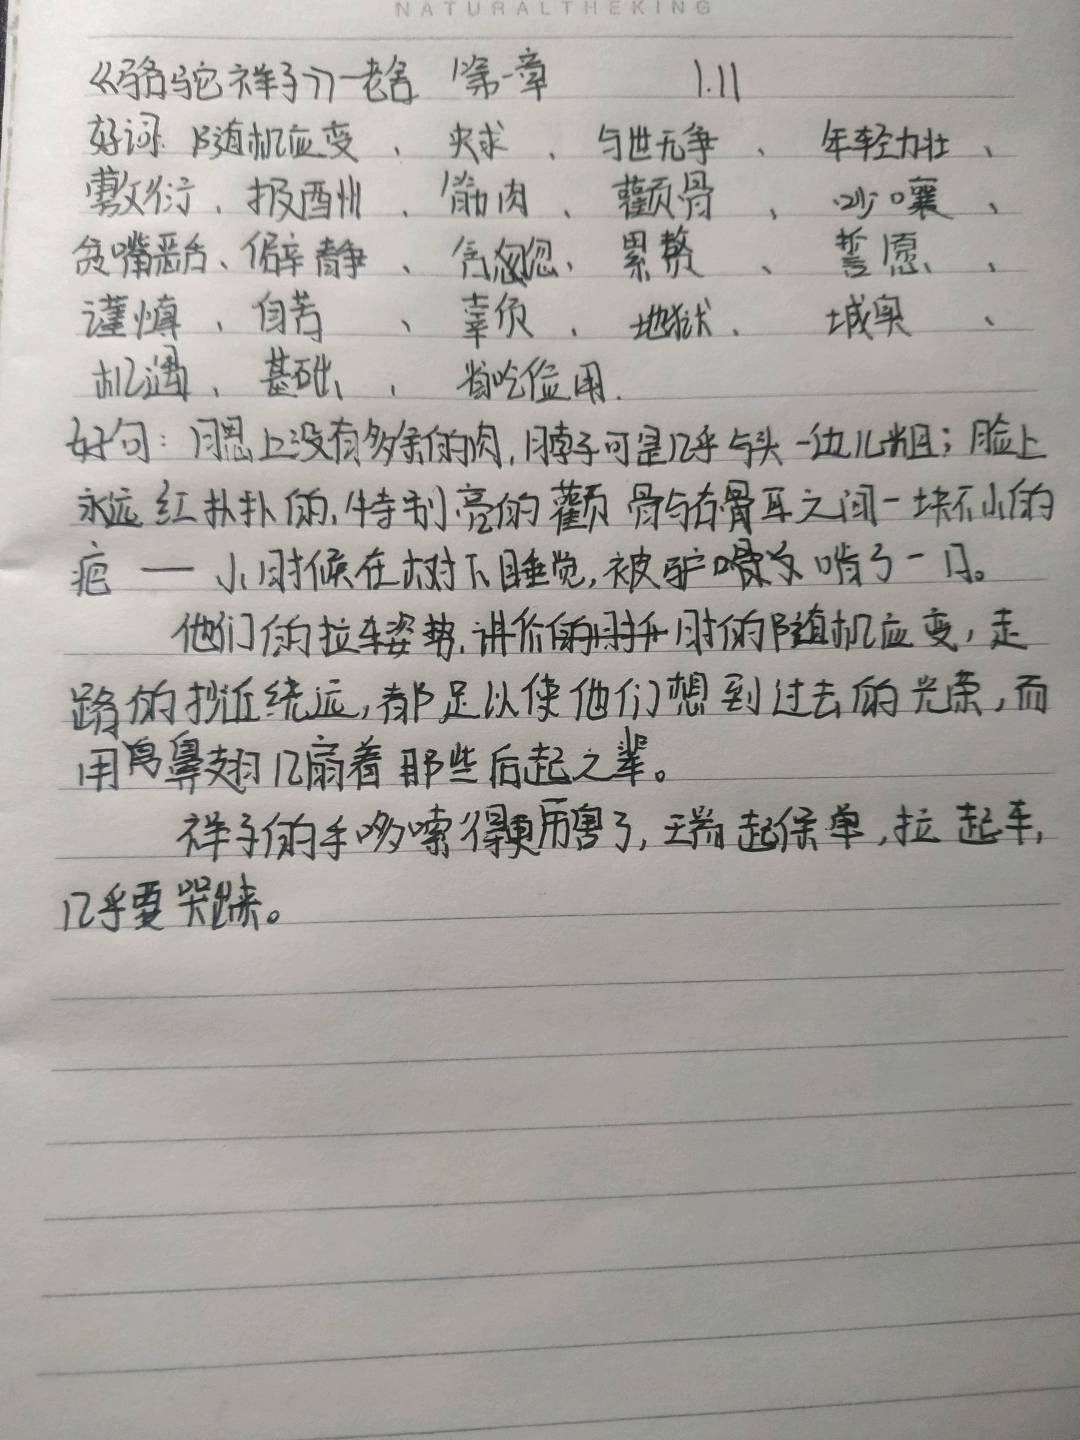 NATURALTHEKING
《骆驼祥子》—老舍 第一章 1.11
好词: 随机应变、央求、与世无争、年轻力壮、
敷衍、报酬、筋肉、颧骨、吵嚷、
贫嘴恶舌、僻静、累赘、誓愿、
谨慎、自若、辜负、地狱、城奥、
机遇、基础、省吃俭用.
好句:腮上没有多余的肉,脖子可是几乎与头一边儿粗;脸上
永远红扑扑的,特别亮的颧骨与右耳之间一块不小的
疤——小时候在树下睡觉,被驴啃了一口。
他们的拉车姿势,讲价时的随机应变,走
路的抄近绕远,都足以使他们想到过去的光荣,而
用鼻翅儿扇着那些后起之辈。
祥子的手哆嗦得更厉害了,端起保单,拉起车,
几乎要哭出来。